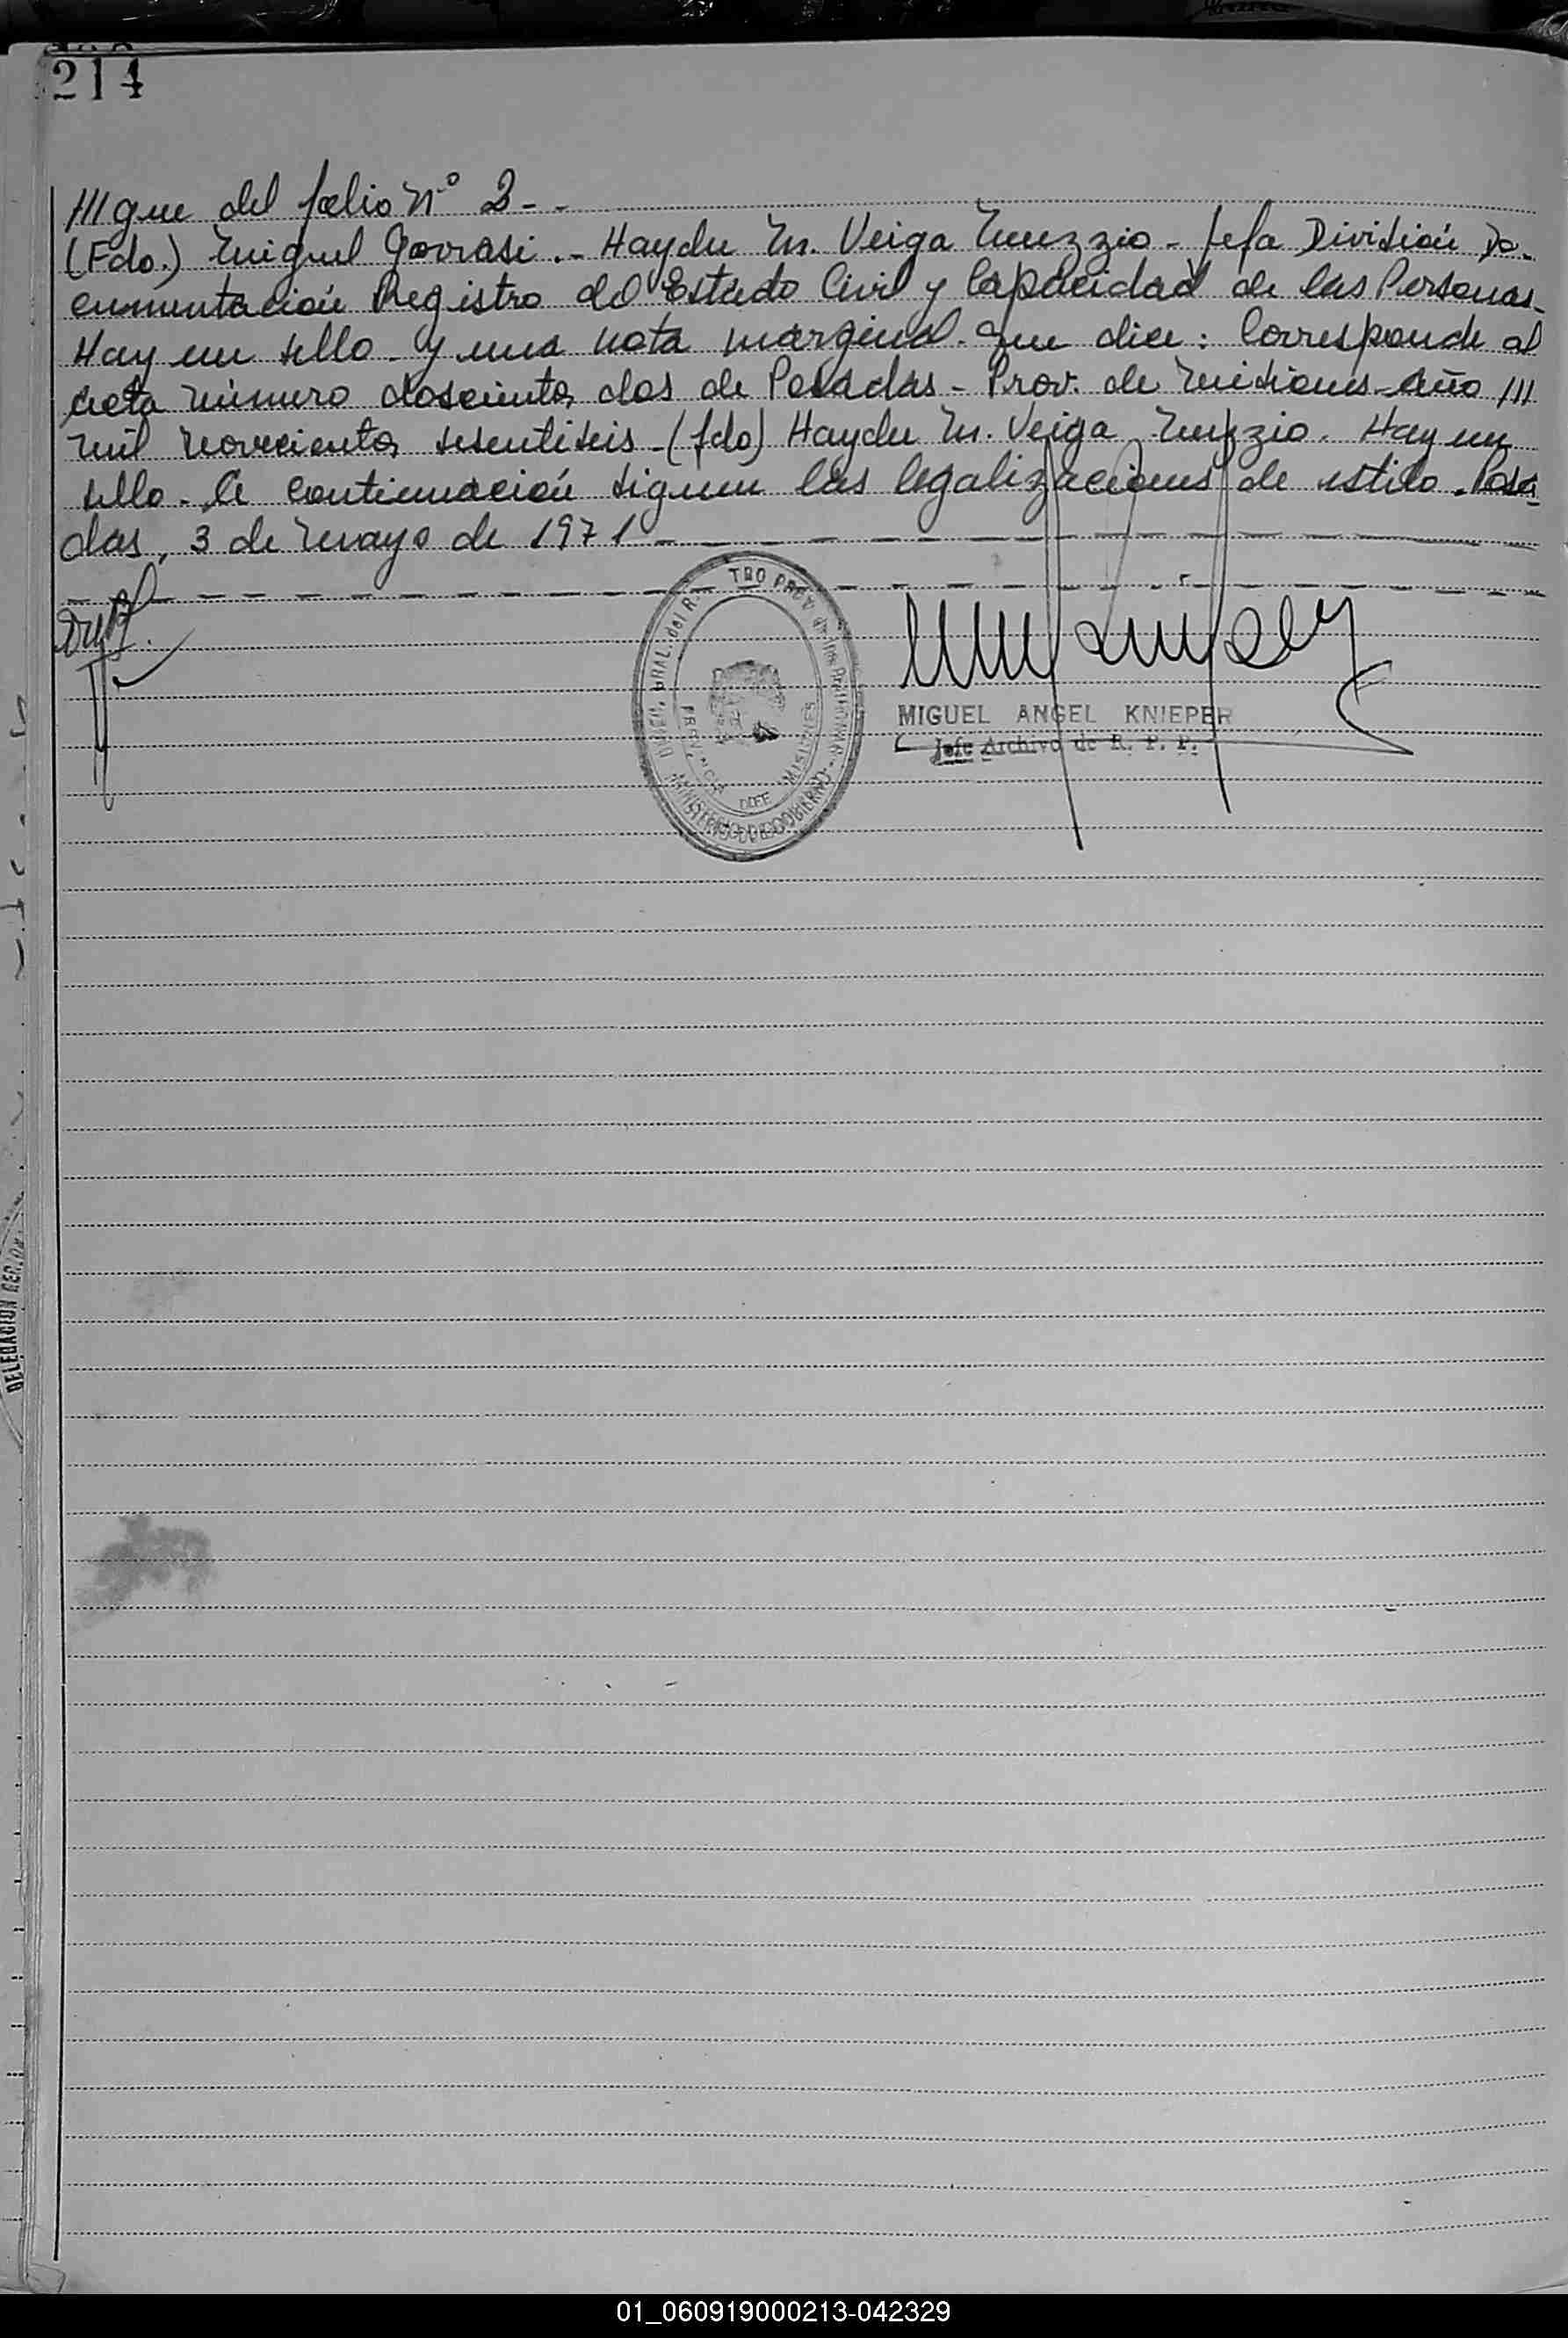 214
///gue del folio Nº 2--
(Fdo.) Miguel Gorrasi.- Haydee M. Veiga Muzzio - Jefa División Do-
cumentación Registro del Estado Civil y Capacidad de las Personas-
Hay un sello - y una nota marginal - que dice: Corresponde al
acta número doscientos dos de Posadas - Prov. de Misiones - Año ///
mil novecientos sesentiseis - (fdo) Haydee M. Veiga Muzzio. Hay un
sello - A continuación siguen las legalizaciones de estilo. Posa-
das, 3 de Mayo de 1971 -
MIGUEL ANGEL KNIEPER
Jefe Archivo de R. P. P.
DELEGACION
01_060919000213-042329